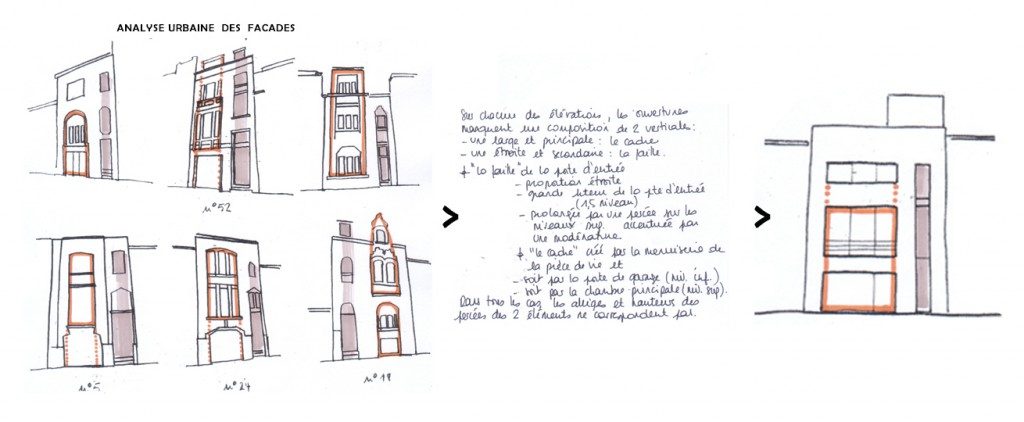 ANALYSE URBAINE DES FACADES
n° 52
n° 5
n° 24
n° 19
Sur chacune des élévations, les ouvertures
marquent une composition de 2 verticales :
- une large et principale : le cadre
- une étroite et secondaire : la faille.
"la faille" de la porte d'entrée
- proportion étroite
- grande hteur de la pte d'entrée
(1,5 niveau)
- prolongée par une percée sur les
niveaux sup. accentuée par
une modénature.
"le cadre" créé par la menuiserie de
la pièce de vie et
- soit par la porte de garage (niv. inf.)
- soit par la chambre principale (niv. sup).
Dans tous les cas les allèges et hauteurs des
percées des 2 éléments ne correspondent pas.